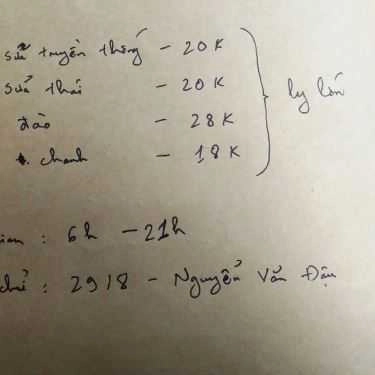 sữa truyền thống - 20K
sữa thái - 20K
đào - 28K
chanh - 18K
ly lớn
gian : 6h - 21h
chỉ : 29/8 - Nguyễn Văn Đậu